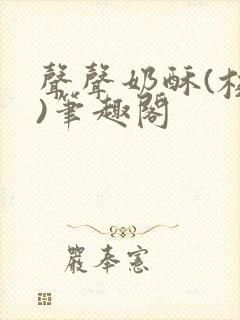 聲聲奶酥(校
)筆趣閣
嚴奉憲